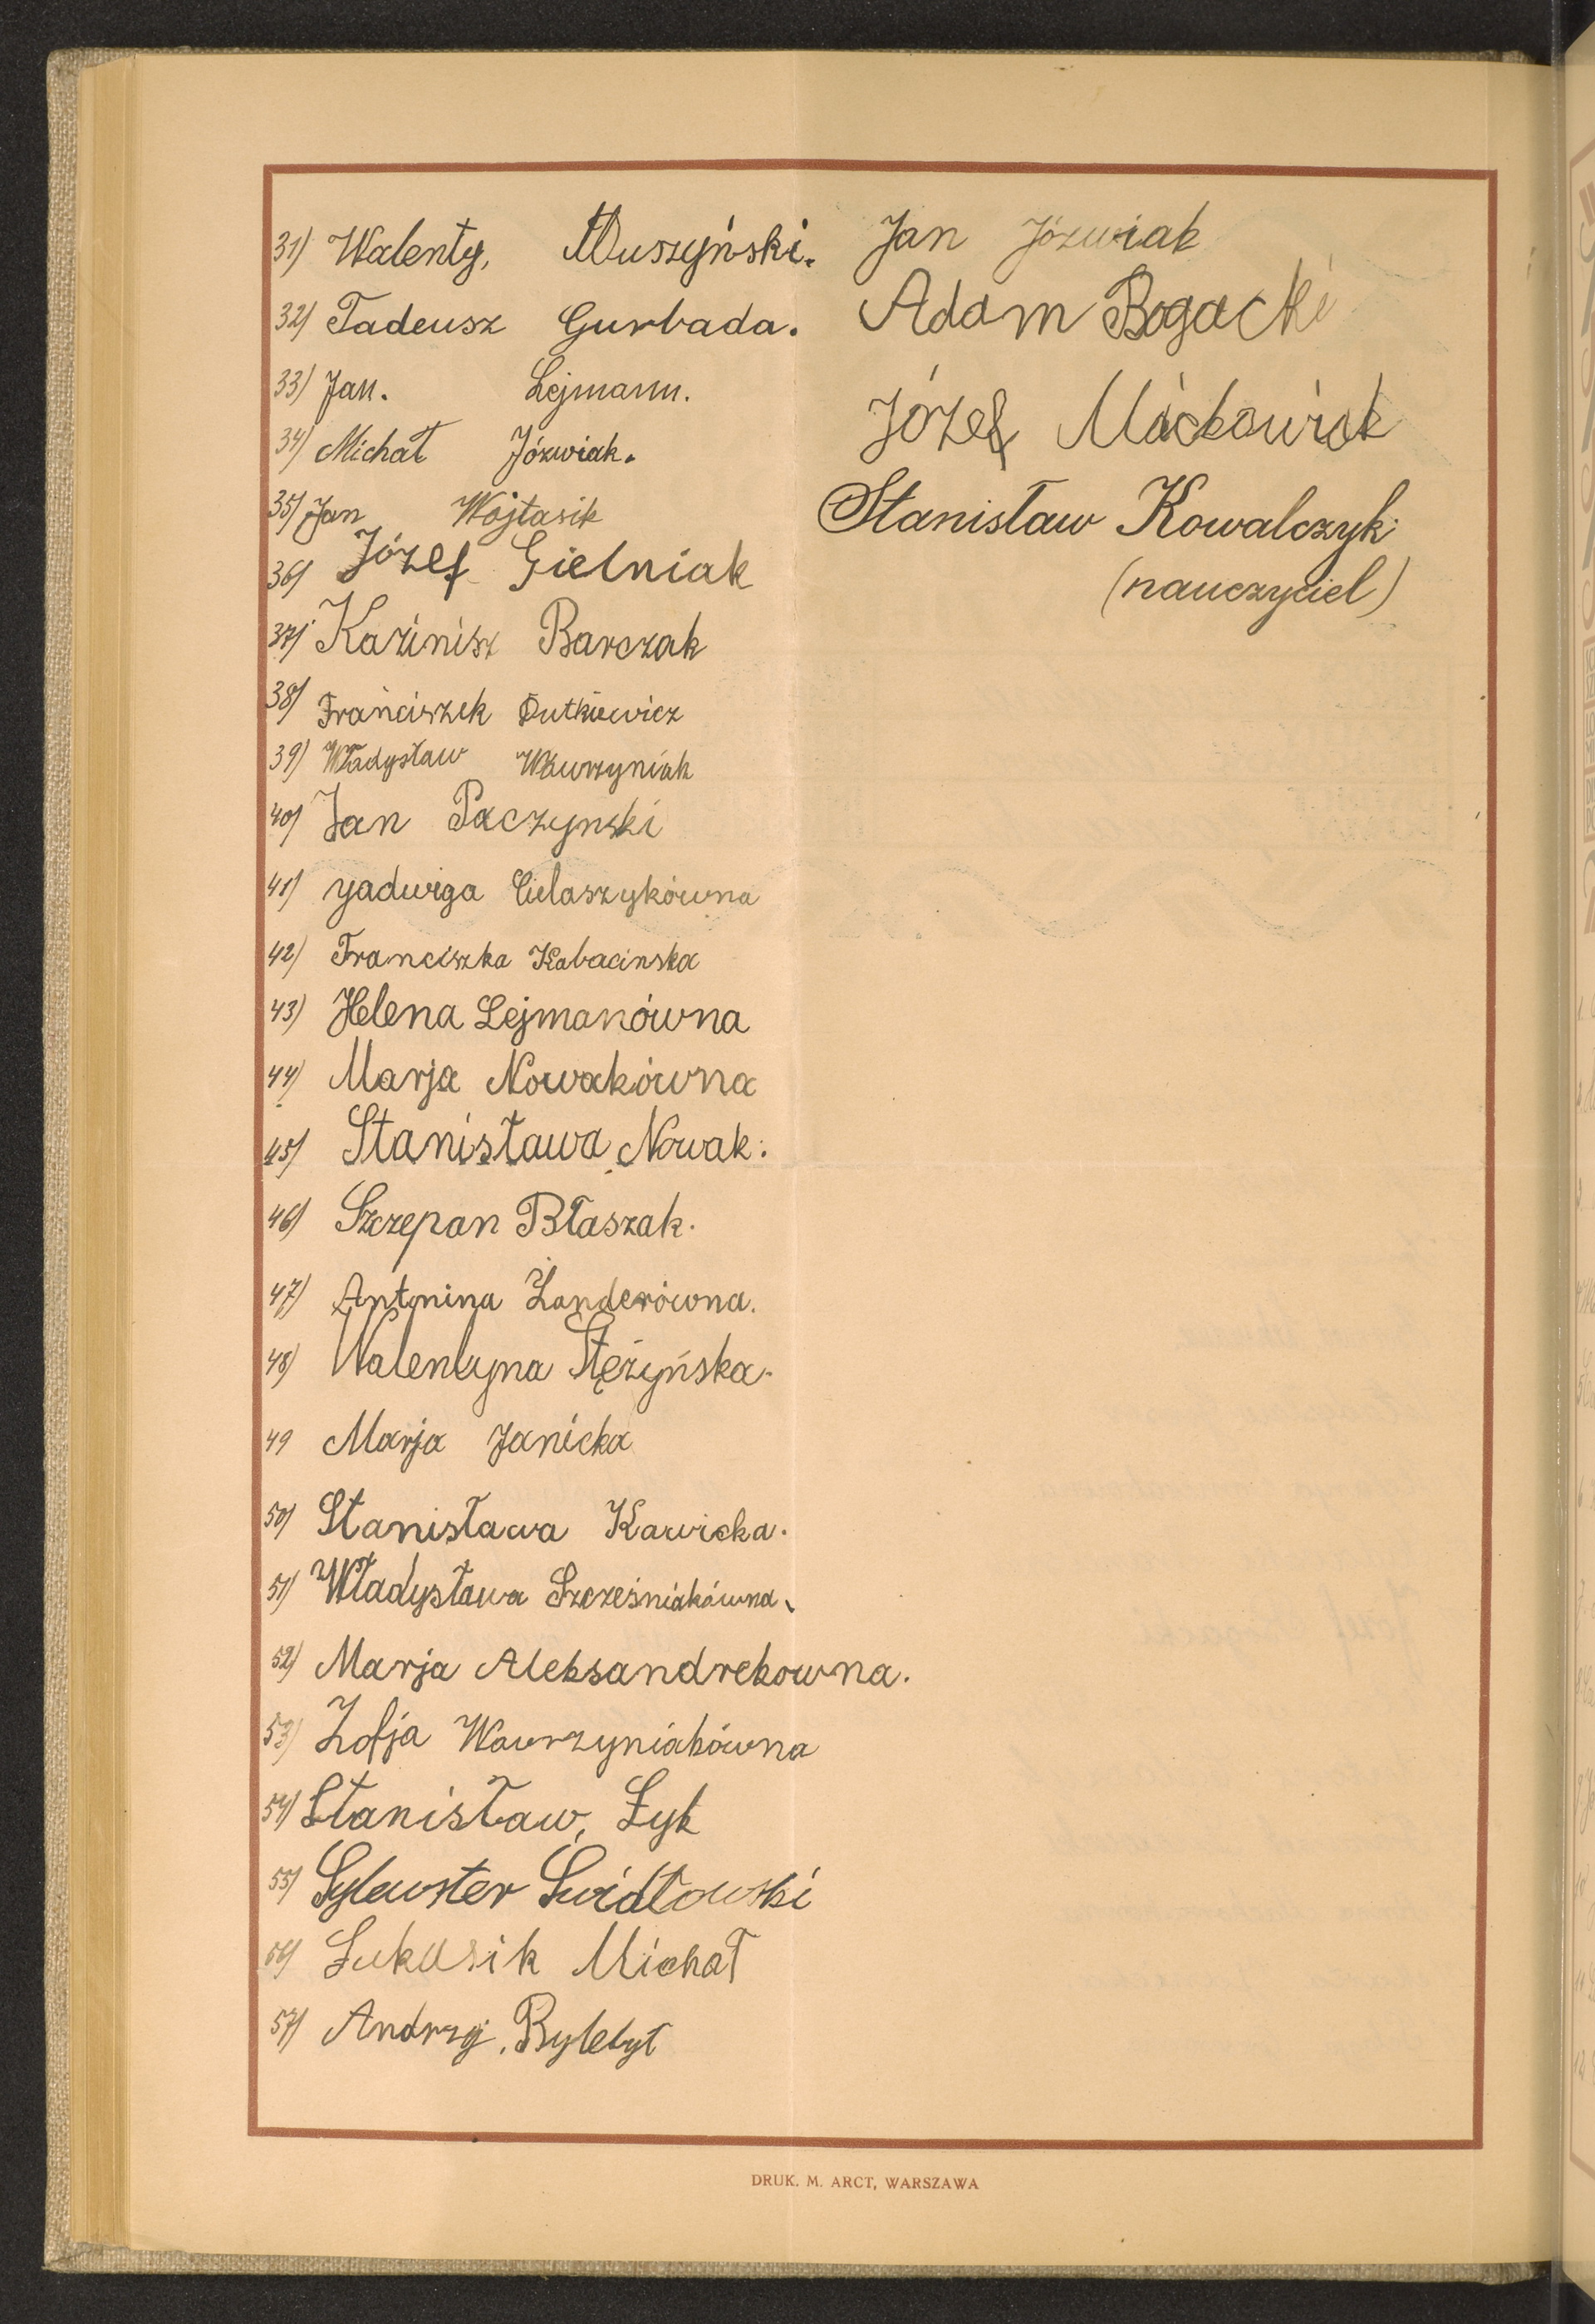 31) Walenty, Muszyński.
32) Tadeusz Gurbada.
33) Jan. Lejmann.
34) Michał Józwiak.
35) Jan Wojtasik
36) Józef Gielniak
37) Kazimisz Barczak
38) Franciszek Dutkiewicz
39) Władysław Wawrzyniak
40) Jan Paczynski
41) Jadwiga Cielaszykówna
42) Franciszka Kabacinska
43) Helena Lejmanówna
44) Marja Nowakówna
45) Stanisława Nowak.
46) Szczepan Błaszak.
47) Antonina Zanderówna.
48) Walentyna Stężyńska.
49 Marja Janicka
50) Stanisława Kawicka.
51) Władysława Szcześniakówna.
52) Marja Aleksandrekowna.
53) Zofja Wawrzyniakówna
54) Stanisław, Łyk
55) Sylwester Świdłowski
56) Łukasik Michał
57) Andrzej, Rylebył
Jan Józwiak
Adam Bogacki
Józef Maćkowiak
Stanisław Kowalczyk
(nauczyciel)
DRUK. M. ARCT, WARSZAWA